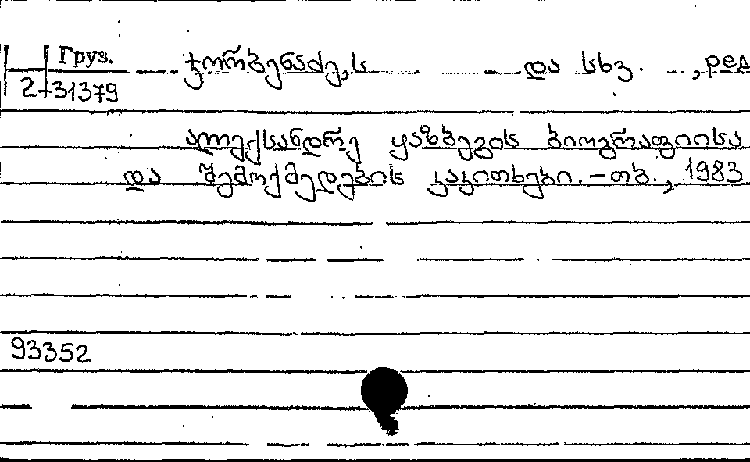 Груз.
ჭორბენაძე, ს და სხვ. , ред
2-31379
ალექსანდრე ყაზბეგის ბიოგრაფიისა
და შემოქმედების საკითხები. - თბ., 1983
93352